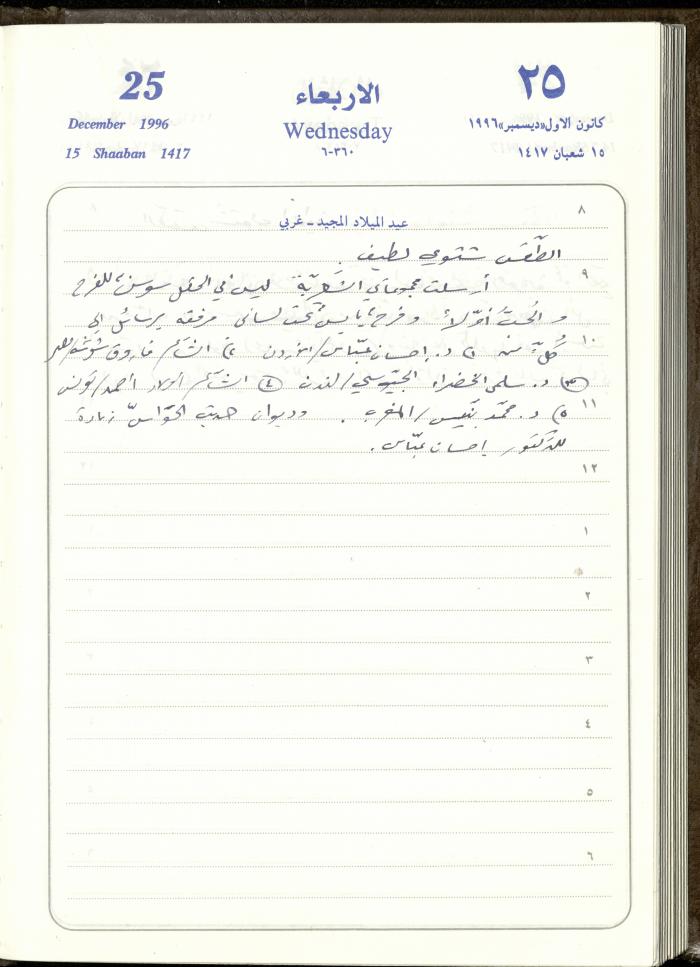 25
December 1996
15 Shaaban 1417
الاربعاء
Wednesday
٦-٣٦٠
٢٥
كانون الاول «ديسمبر» ١٩٩٦
١٥ شعبان ١٤١٧
٨
عيد الميلاد المجيد - غربي
الطقس شتوي لطيف.
٩
أرسلت مجموعاتي الشعرية ليس في الحقل سوسن، للفرح
والحب أولاً وفرح يابس تحت لساني مرفقه برسائل إلى
١٠
كلّ من ١) د. إحسان عبّاس/الأردن ٢) الشاعر فاروق شوشة/مصر
٣) د. سلمى الخضراء الجيّوسي/لندن ٤) الشاعر أولاد أحمد/تونس
١١
٥) د. محمّد بنّيس/المغرب. وديوان حديث الحواسّ زيادة
للدكتور إحسان عبّاس.
١٢
١
٢
٣
٤
٥
٦